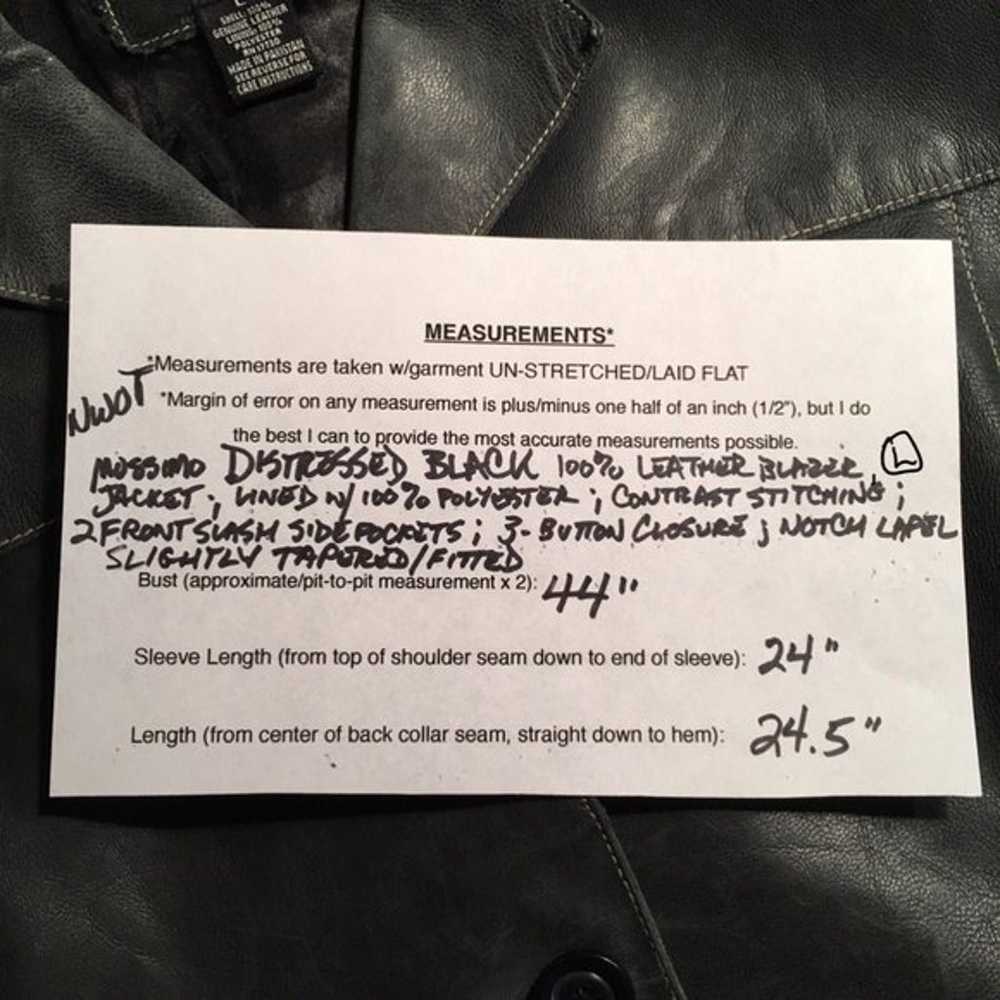 L
SHELL: 100%
GENUINE LEATHER
LINING: 100%
POLYESTER
RN 17730
MADE IN PAKISTAN
SEE REVERSE FOR
CARE INSTRUCTIONS
MEASUREMENTS*
*Measurements are taken w/garment UN-STRETCHED/LAID FLAT
NWOT
*Margin of error on any measurement is plus/minus one half of an inch (1/2"), but I do
the best I can to provide the most accurate measurements possible.
MOSSIMO DISTRESSED BLACK 100% LEATHER BLAZER, L
JACKET; LINED W/ 100% POLYESTER; CONTRAST STITCHING;
2 FRONT SLASH SIDE POCKETS; 3-BUTTON CLOSURE; NOTCH LAPEL
SLIGHTLY TAPERED/FITTED
Bust (approximate/pit-to-pit measurement x 2): 44"
Sleeve Length (from top of shoulder seam down to end of sleeve): 24"
Length (from center of back collar seam, straight down to hem): 24.5"